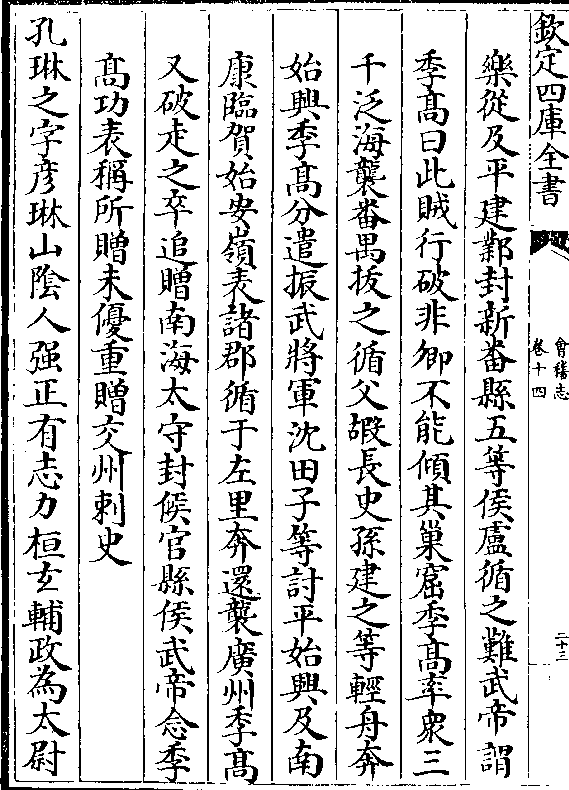 欽定四庫全書
會稽志
卷十四
二十三
樂從及平建鄴封新番縣五等侯盧循之難武帝謂
季髙曰此賊行破非卿不能傾其巢窟季髙率衆三
千泛海襲番禺拔之循父嘏長史孫建之等輕舟奔
始興季髙分遣振武將軍沈田子等討平始興及南
康臨賀始安嶺表諸郡循于左里奔還襲廣州季髙
又破走之卒追贈南海太守封候官縣侯武帝念季
髙功表稱所贈未優重贈交州刺史
孔琳之字彦琳山陰人强正有志力桓玄輔政為太尉